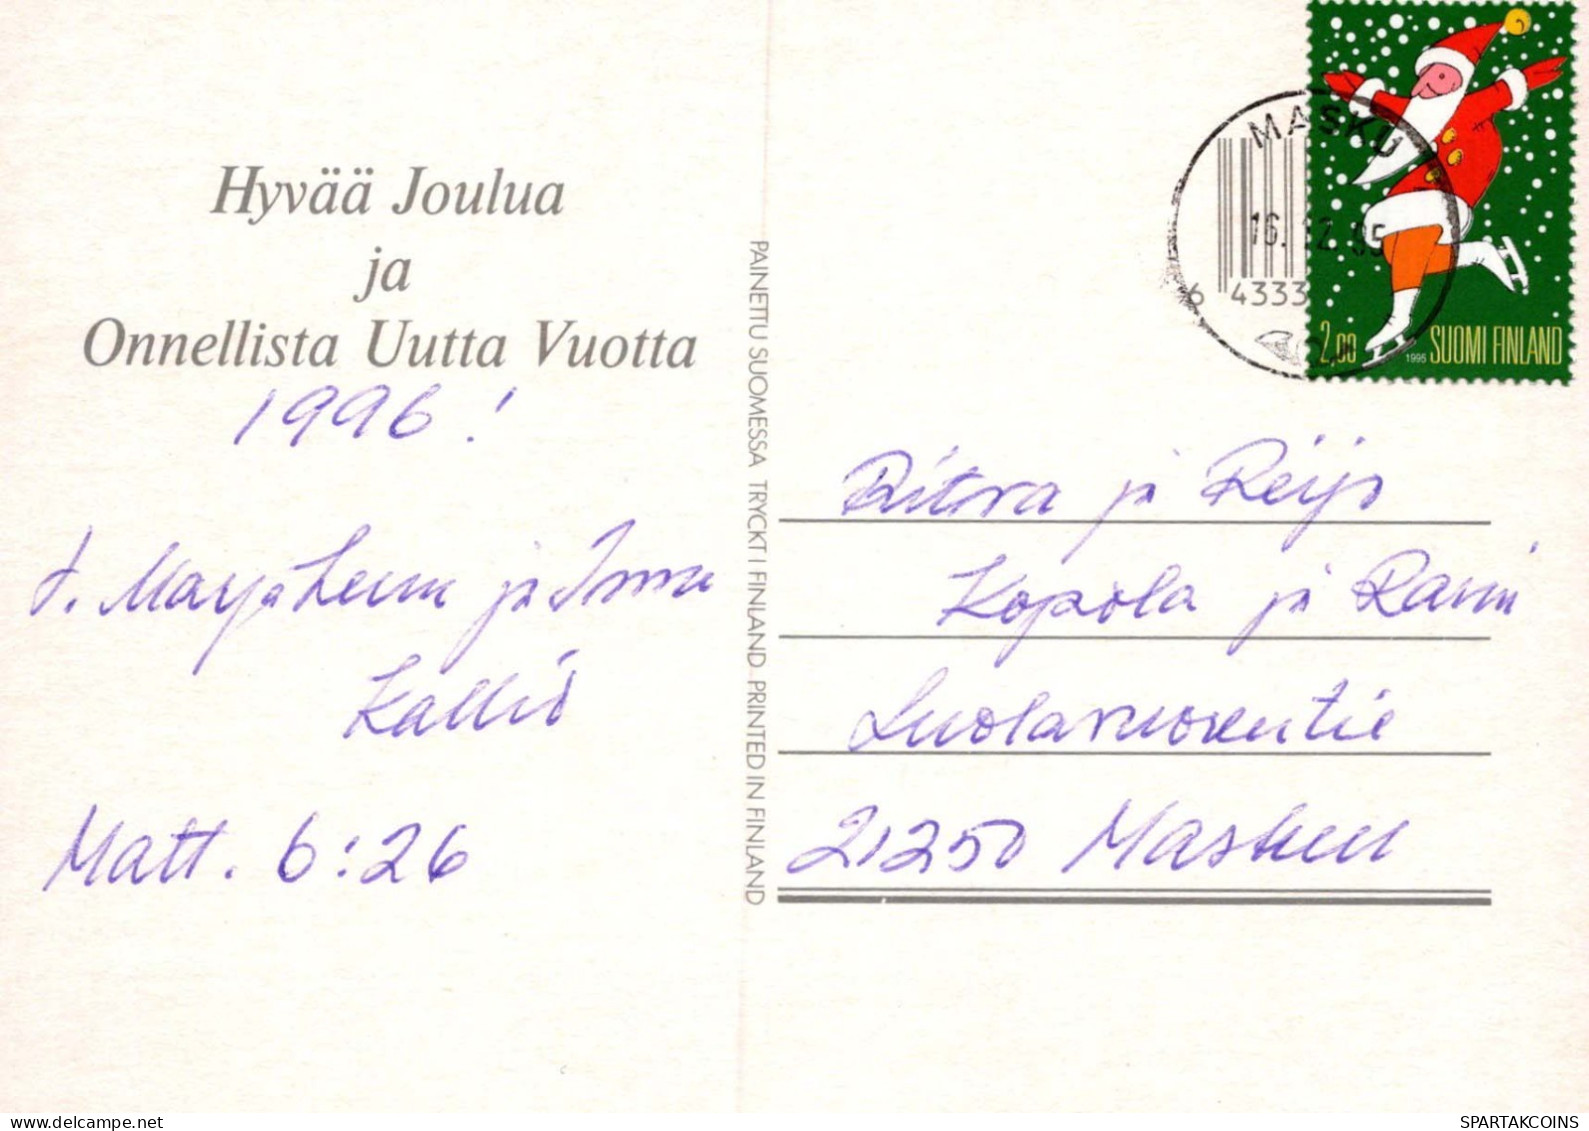 Hyvää Joulua
ja
Onnellista Uutta Vuotta
1996!
t. Marjaleena ja Ismo
Kallio
Matt. 6:26
PAINETTU SUOMESSA TRYCKT I FINLAND PRINTED IN FINLAND
MASKU
16.12.95
6 4333
2,00 1995 SUOMI FINLAND
Ritva ja Reijo
Kopola ja Rami
Luolavuorentie
21250 Masku
SPARTAKCOINS